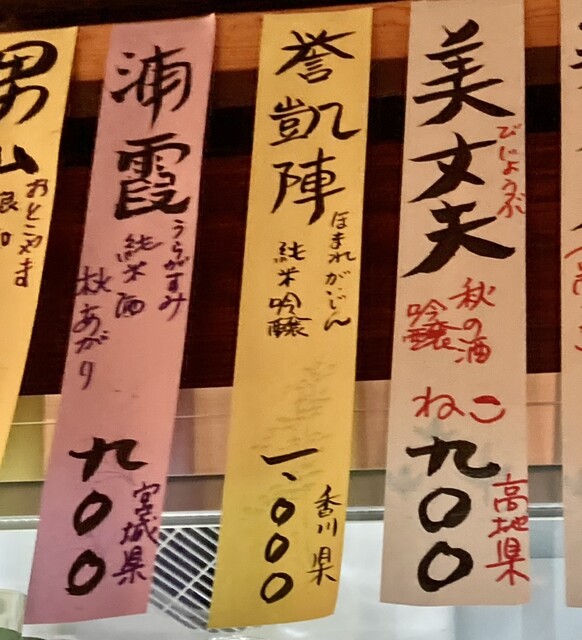 美丈夫
びじょうぶ
秋の酒
吟醸
ねこ
九〇〇
高地県
誉凱陣
ほまれがいじん
純米吟醸
一、〇〇〇
香川県
浦霞
うらがすみ
純米酒
秋あがり
九〇〇
宮城県
男山
おとこやま